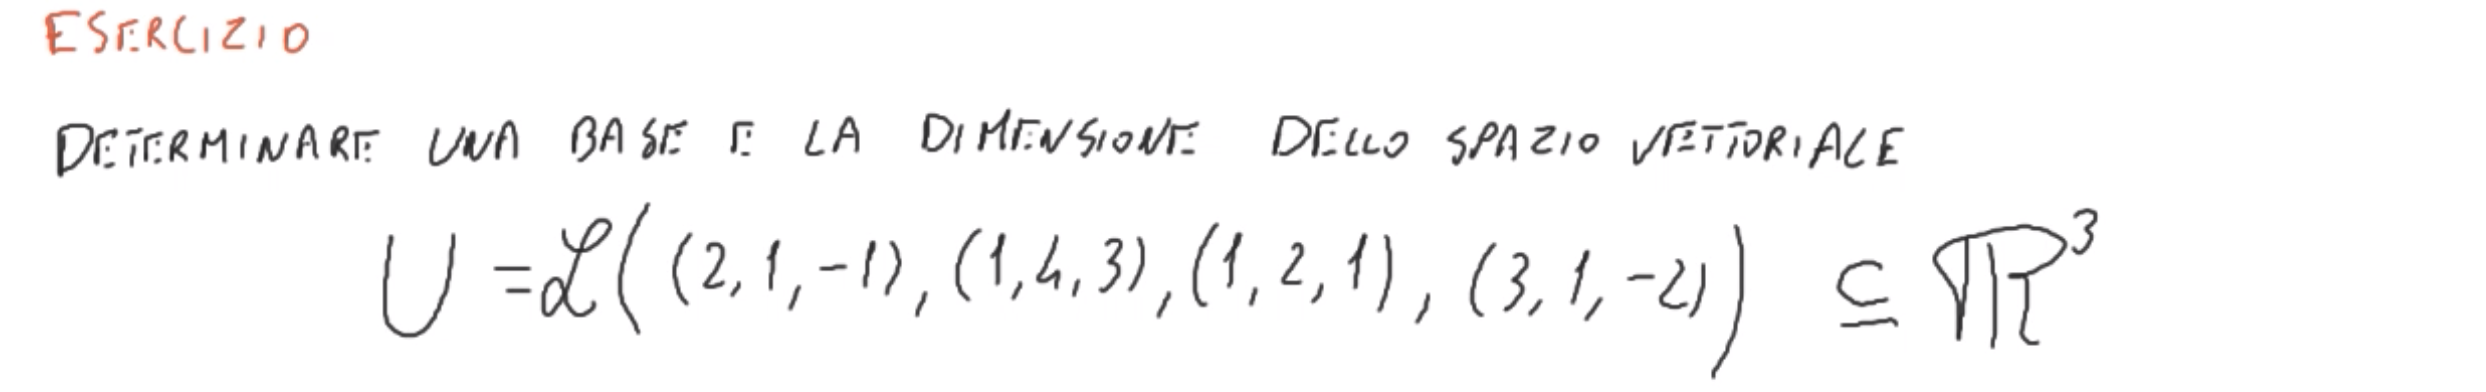 ESERCIZIO
DETERMINARE UNA BASE E LA DIMENSIONE DELLO SPAZIO VETTORIALE
U = ℒ((2, 1, -1), (1, 4, 3), (1, 2, 1), (3, 1, -2)) ⊆ ℝ³